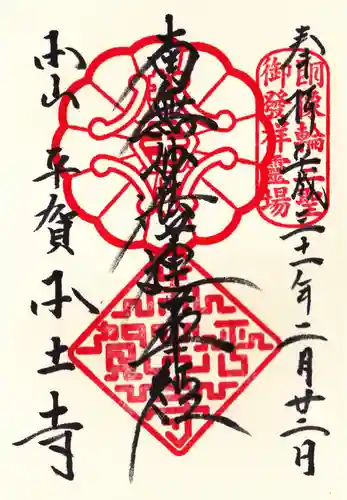 奉拝 平成三十一年二月廿二日
御發祥靈場
南無妙法蓮華經
本山 平賀 本土寺